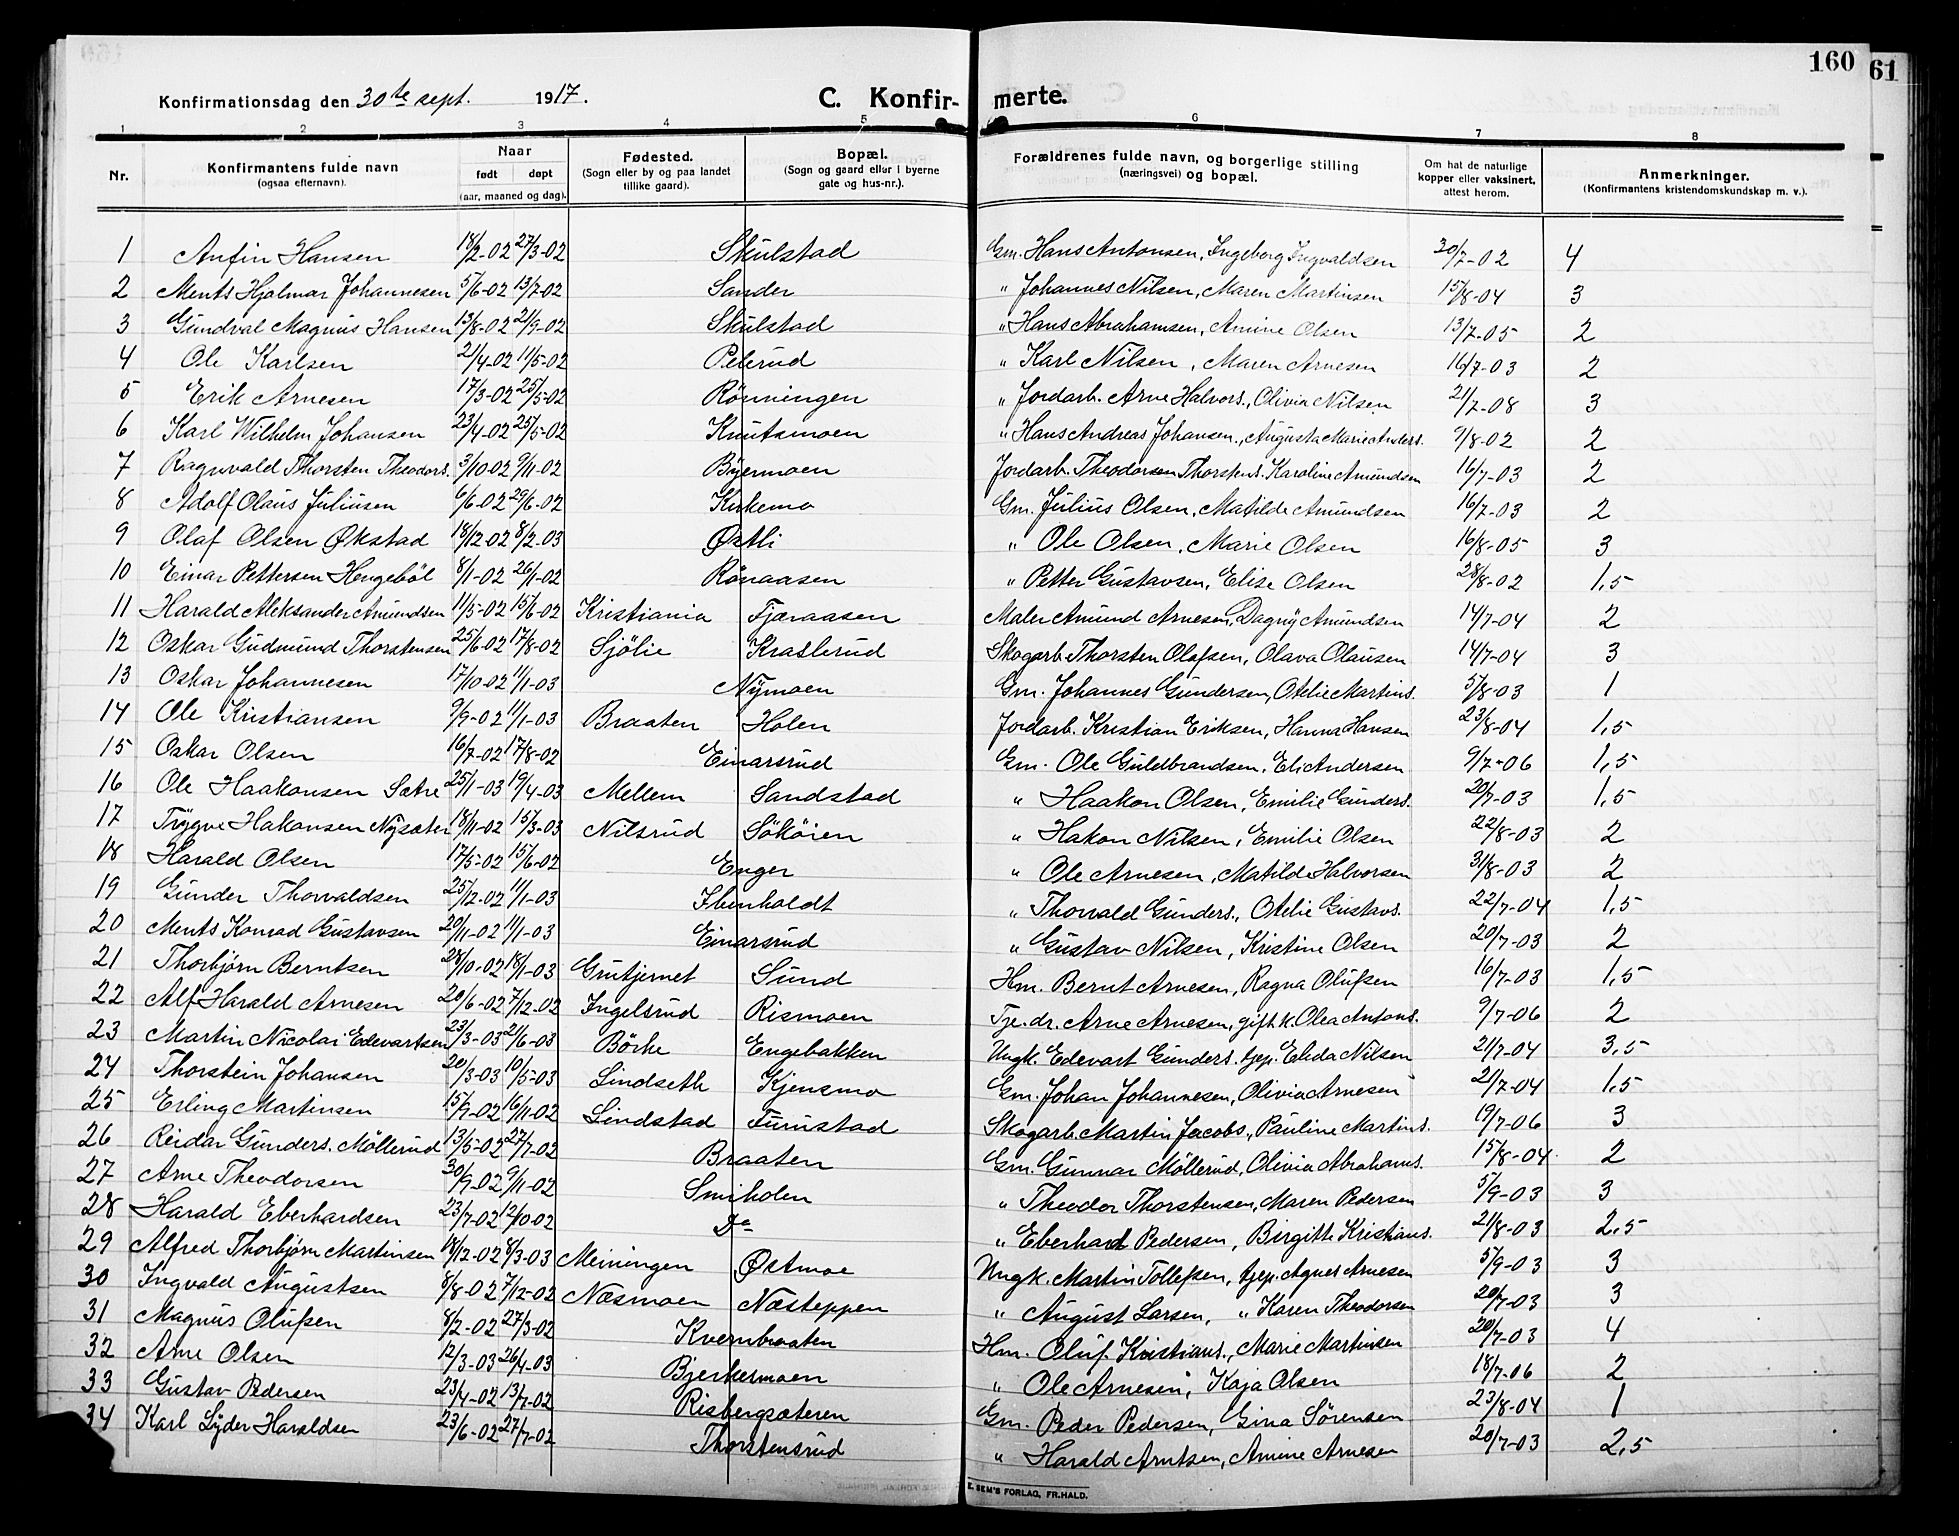 160
61
Konfirmationsdag den 30te sept. 1917.
C. Konfir- merte.
1 2 3 4 5 6 7 8
Nr.
Konfirmantens fulde navn
(ogsaa efternavn).
Naar
født døpt
(aar, maaned og dag).
Fødested.
(Sogn eller by og paa landet
tillike gaard).
Bopæl.
(Sogn og gaard eller i byerne
gate og hus-nr.).
Forældrenes fulde navn, og borgerlige stilling
(næringsvei) og bopæl.
Om hat de naturlige
kopper eller vaksinert,
attest herom.
Anmerkninger.
(Konfirmantens kristendomskundskap m. v.).
1 Anfin Hansen 18/2-02 27/3-02 Skulstad Gm. Hans Antonsen, Ingeborg Ingvaldsen 30/7-02 4
2 Ments Hjalmar Johannesen 5/6-02 13/7-02 Sander " Johannes Nilsen, Maren Martinsen 15/8-04 3
3 Gundval Magnus Hansen 13/8-02 21/9-02 Skulstad " Hans Abrahamsen, Amine Olsen 13/7-05 2
4 Ole Karlsen 21/4-02 11/5-02 Peterud " Karl Nilsen, Maren Arnesen 16/7-03 2
5 Erik Arnesen 17/3-02 25/5-02 Rönningen " Jordarb. Arne Halvors., Olivia Nilsen 21/7-08 3
6 Karl Wilhelm Johansen 23/4-02 25/5-02 Knutsmoen " Hans Andreas Johansen, Augusta Marie Anders. 9/8-02 2
7 Ragnvald Thorsten Theodors. 3/10-02 9/11-02 Byermoen Jordarb. Theodorsen Thorstens. Karoline Amundsen 16/7-03 2
8 Adolf Olaus Juliusen 6/6-02 29/6-02 Kirkemo Gm. Julius Olsen, Matilde Amundsen 16/7-03 2
9 Olaf Olsen Økstad 18/12-02 8/2-03 Østli " Ole Olsen, Marie Olsen 16/8-05 3
10 Einar Pettersen Hengeböl 8/1-02 26/1-02 Rönaasen " Petter Gustavsen, Elise Olsen 28/8-02 1,5
11 Harald Aleksander Amundsen 11/5-02 15/6-02 Kristiania Fjæraasen Maler Amund Arnesen, Dagny Amundsen 14/7-04 2
12 Oskar Gudmund Thorstensen 25/6-02 17/8-02 Sjölie Kraslerud Skogarb. Thorsten Olafsen, Olava Olausen 14/7-04 3
13 Oskar Johannesen 17/10-02 11/1-03 Nymoen Gm. Johannes Gundersen, Otelie Martins. 5/8-03 1
14 Ole Kristiansen 9/9-02 11/1-03 Braaten Holen Jordarb. Kristian Eriksen, Hanna Hansen 23/8-04 1,5
15 Oskar Olsen 16/7-02 17/8-02 Einarsrud Gm. Ole Guldbrandsen, Eli Andersen 9/7-06 1,5
16 Ole Haakonsen Sætre 25/1-03 19/4-03 Mellem Sandstad " Haakon Olsen, Emilie Gunders. 20/7-03 1,5
17 Tryggve Hakonsen Nysæter 18/11-02 15/3-03 Nilsrud Sököien " Hakon Nilsen, Emilie Olsen 22/8-03 2
18 Harald Olsen 17/5-02 15/6-02 Enger " Ole Arnesen, Matilde Halvorsen 31/8-03 2
19 Gunder Thorvaldsen 25/12-02 11/1-03 Ibenholdt " Thorvald Gunders., Otelie Gustavs. 22/7-04 1,5
20 Ments Konrad Gustavsen 20/11-02 11/1-03 Einarsrud " Gustav Nilsen, Kristine Olsen 20/7-03 2
21 Thorbjørn Berntsen 28/10-02 18/1-03 Grutjernet Sund Hm. Bernt Arnesen, Ragna Olufsen 16/7-03 1,5
22 Alf Harald Arnesen 20/6-02 7/12-02 Ingelsrud Rismoen Tje.dr. Arne Arnesen, gift k. Olea Antons. 9/7-06 2
23 Martin Nicolai Edevartsen 23/3-03 21/6-03 Börke Engebakken Ungk. Edevart Gunders. tjep. Elida Nilsen 21/7-04 3,5
24 Thorstein Johansen 20/3-03 10/5-03 Lindseth Kjensmo Gm. Johan Johannesen, Olivia Arnesen 21/7-04 1,5
25 Erling Martinsen 15/9-02 16/11-02 Lindstad Furustad Skogarb. Martin Jacobs., Pauline Martins. 19/7-06 3
26 Reidar Gunders. Möllerud 13/5-02 27/7-02 Braaten Gm. Gunnar Möllerud, Olivia Abrahams. 15/8-04 2
27 Arne Theodorsen 30/9-02 9/11-02 Smiholen " Theodor Thorstensen, Maren Pedersen 5/9-03 3
28 Harald Eberhardsen 23/7-02 12/10-02 Do " Eberhard Pedersen, Birgitte Kristians. 21/8-03 2,5
29 Alfred Thorbjørn Martinsen 18/12-02 8/3-03 Meiningen Østmoe Ungk. Martin Tollefsen, tjep. Agnes Arnesen 5/9-03 3
30 Ingvald Augustsen 8/8-02 7/12-02 Næsmoen Næsteppen " August Larsen, " Karen Theodorsen 20/7-03 3
31 Magnus Olufsen 8/2-02 27/3-02 Kvernbraaten Hm. Oluf Kristians., Marie Martinsen 20/7-03 4
32 Arne Olsen 12/3-03 26/4-03 Bjerkermoen " Ole Arnesen, Kaja Olsen 18/7-06 2
33 Gustav Pedersen 23/4-02 13/7-02 Risbergsæteren Gm. Peder Pedersen, Gina Sörensen 23/8-04 1
34 Karl Lyder Haraldsen 23/6-02 27/7-02 Thorstensrud " Harald Arntsen, Amine Arnesen 20/7-03 2,5
E. SEM'S FORLAG, FR.HALD.